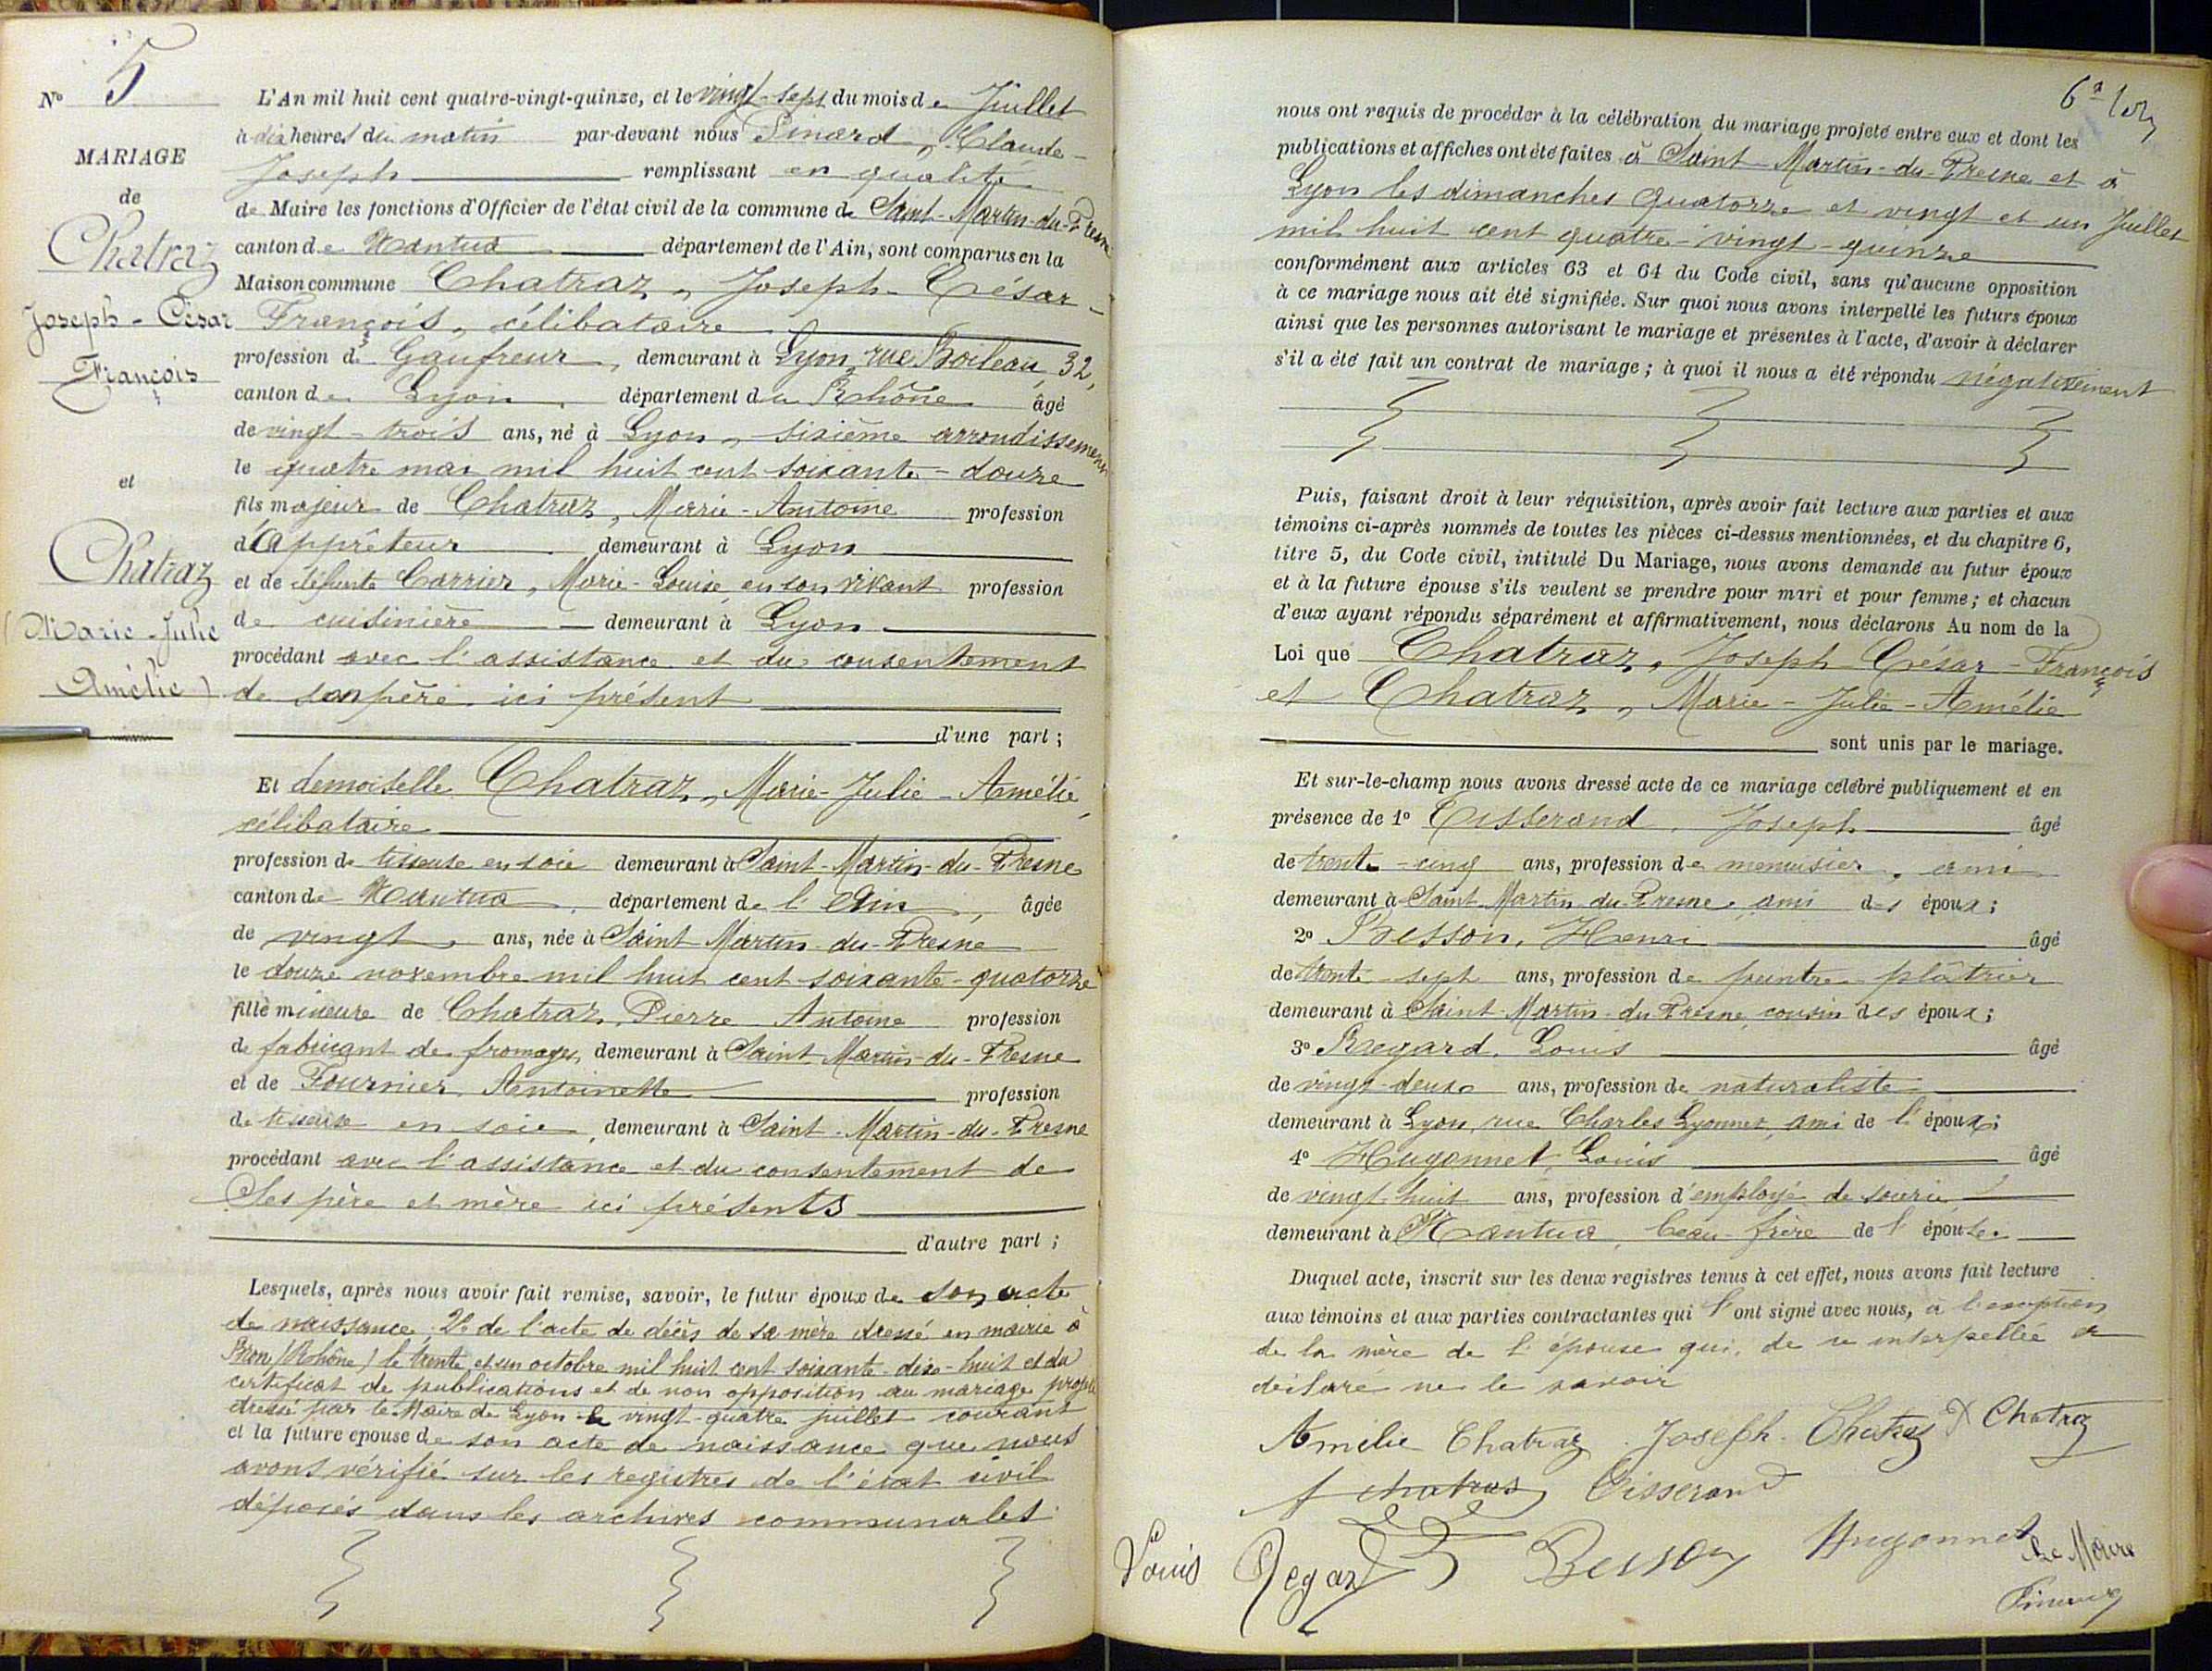 N° 5
MARIAGE
de
Chatraz
Joseph-César
François
et
Chatraz
(Marie-Julie
Amélie)
L'An mil huit cent quatre-vingt-quinze, et le vingt-sept du mois de Juillet
à dix heures du matin par-devant nous Pinard, Claude-
Joseph remplissant en qualité
de Maire les fonctions d'Officier de l'état civil de la commune de Saint-Martin-du-Fresne
canton de Nantua département de l'Ain, sont comparus en la
Maison commune Chatraz, Joseph-César-
François, célibataire
profession de Gaufreur, demeurant à Lyon, rue Boileau, 32,
canton de Lyon, département du Rhône âgé
de vingt-trois ans, né à Lyon, sixième arrondissement
le quatre mai mil huit cent soixante-douze
fils majeur de Chatraz, Marie-Antoine profession
d'apprêteur demeurant à Lyon
et de défunte Carrier, Marie-Louise, en son vivant profession
de cuisinière demeurant à Lyon
procédant avec l'assistance et du consentement
de son père ici présent
d'une part;
Et demoiselle Chatraz, Marie-Julie-Amélie,
célibataire
profession de tisseuse en soie demeurant à Saint-Martin-du-Fresne
canton de Nantua, département de l'Ain, âgée
de vingt, ans, née à Saint Martin-du-Fresne
le douze novembre mil huit cent soixante-quatorze
fille mineure de Chatraz, Pierre Antoine profession
de fabricant de fromages, demeurant à Saint Martin-du-Fresne
et de Fournier, Antoinette profession
de tisseuse en soie, demeurant à Saint-Martin-du-Fresne
procédant avec l'assistance et du consentement de
Ses père et mère ici présents
d'autre part;
Lesquels, après nous avoir fait remise, savoir, le futur époux de son acte
de naissance, 2° de l'acte de décès de sa mère dressé en mairie à
Bron (Rhône) le trente et un octobre mil huit cent soixante-dix-huit et du
certificat de publications et de non opposition au mariage projeté
dressé par le Maire de Lyon le vingt-quatre juillet courant
et la future épouse de son acte de naissance que nous
avons vérifié sur les registres de l'état civil
déposés dans les archives communales
6e
nous ont requis de procéder à la célébration du mariage projeté entre eux et dont les
publications et affiches ont été faites à Saint-Martin-du-Fresne et à
Lyon les dimanches quatorze et vingt et un Juillet
mil huit cent quatre-vingt-quinze
conformément aux articles 63 et 64 du Code civil, sans qu'aucune opposition
à ce mariage nous ait été signifiée. Sur quoi nous avons interpellé les futurs époux
ainsi que les personnes autorisant le mariage et présentes à l'acte, d'avoir à déclarer
s'il a été fait un contrat de mariage; à quoi il nous a été répondu négativement
Puis, faisant droit à leur réquisition, après avoir fait lecture aux parties et aux
témoins ci-après nommés de toutes les pièces ci-dessus mentionnées, et du chapitre 6,
titre 5, du Code civil, intitulé Du Mariage, nous avons demandé au futur époux
et à la future épouse s'ils veulent se prendre pour mari et pour femme; et chacun
d'eux ayant répondu séparément et affirmativement, nous déclarons Au nom de la
Loi que Chatraz, Joseph-César-François
et Chatraz, Marie-Julie-Amélie
sont unis par le mariage.
Et sur-le-champ nous avons dressé acte de ce mariage célébré publiquement et en
présence de 1° Tisserand, Joseph âgé
de trente-cinq ans, profession de menuisier, ami
demeurant à Saint-Martin-du-Fresne, ami des époux;
2° Besson, Henri âgé
de trente-sept ans, profession de peintre-plâtrier
demeurant à Saint-Martin-du-Fresne, cousin des époux;
3° Regard, Louis âgé
de vingt-deux ans, profession de naturaliste
demeurant à Lyon, rue Charles Lyonnet, ami de l'époux;
4° Hugonnet, Louis âgé
de vingt-huit ans, profession d'employé de soierie
demeurant à Nantua, beau-frère de l'épouse.
Duquel acte, inscrit sur les deux registres tenus à cet effet, nous avons fait lecture
aux témoins et aux parties contractantes qui l'ont signé avec nous, à l'exception
de la mère de l'épouse qui, de ce interpellée a
déclaré ne le savoir
Amélie Chatraz Joseph Chatraz Chatraz
Chatraz Tisserand
Louis Regard Besson Hugonnet Le Maire
Pinard